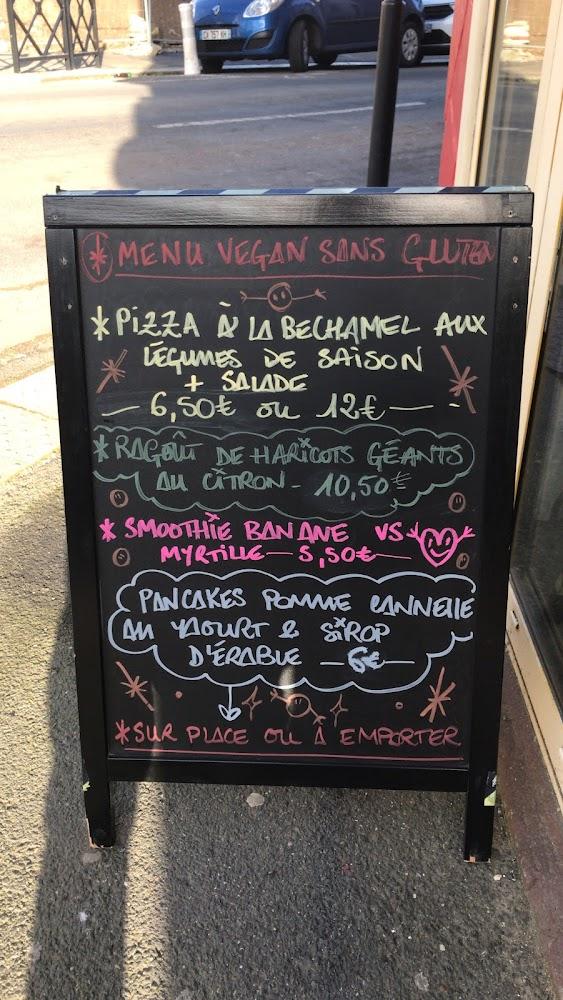 * MENU VEGAN SANS GLUTEN
* PIZZA À LA BECHAMEL AUX
LÉGUMES DE SAISON
+ SALADE
— 6,50€ ou 12€ —
* RAGOÛT DE HARICOTS GÉANTS
AU CITRON - 10,50€
* SMOOTHIE BANANE VS
MYRTILLE — 5,50€ —
PANCAKES POMME CANNELLE
AU YAOURT & SIROP
D'ÉRABLE — 6€ —
* SUR PLACE OU À EMPORTER